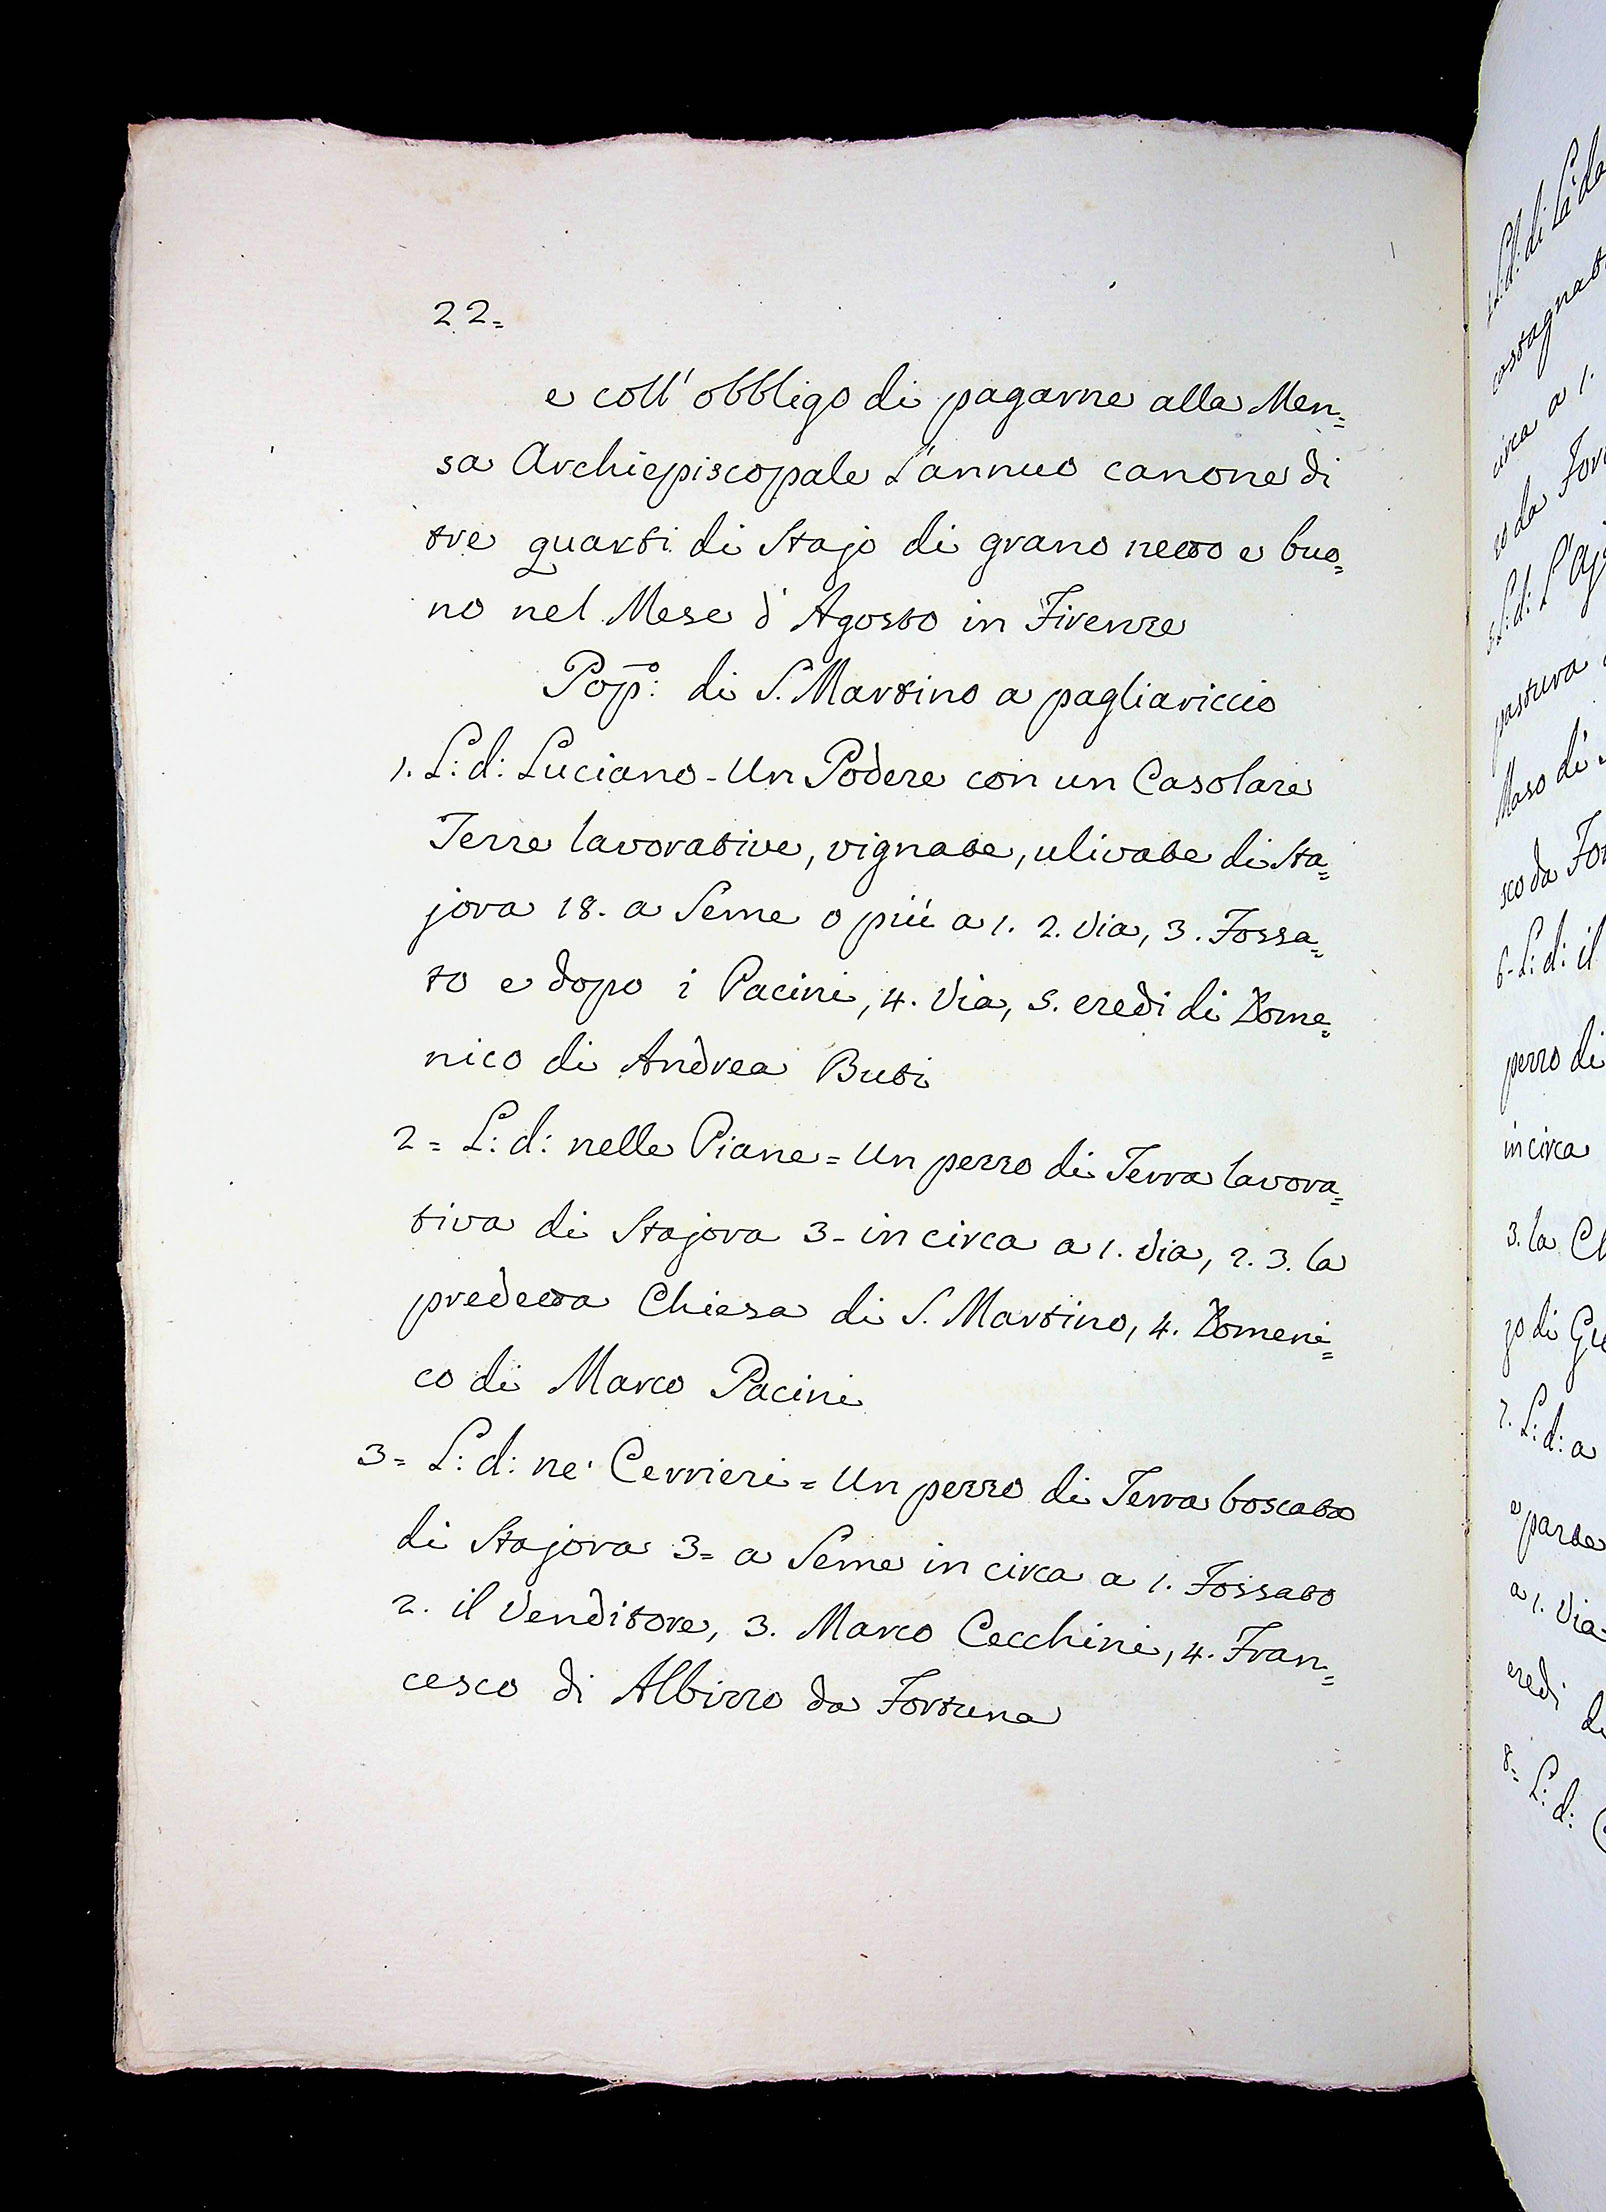 22=
e coll' obbligo di pagarne alla Men=
sa Archiepiscopale L'annuo canone di
tre quarti di Stajo di grano netto e buo=
no nel Mese d'Agosto in Firenze
Pop:º di S. Martino a pagliariccio
1. L: d: Luciano - Un Podere con un Casolare
Terre lavorative, vignate, ulivate di Sta=
jora 18. a Seme o più a 1. 2. Via, 3. Fossa=
to e dopo i Pacini, 4. Via, 5. eredi di Dome=
nico di Andrea Buti
2= L: d: nelle Piane = Un pezzo di Terra lavora=
tiva di Stajora 3- in circa a 1. Via, 2. 3. la
predetta Chiesa di S. Martino, 4. Domeni=
co di Marco Pacini
3= L: d: ne' Cerrieri = Un pezzo di Terra boscata
di Stajora 3= a Seme in circa a 1. Fossato
2. il Venditore, 3. Marco Cecchini, 4. Fran=
cesco di Albizzo da Fortuna
L: d: di Là da
castagnat
circa a 1.
co da For
5. L: d: L'Aj
pastura
Maso di
sco da For
6- L: d: il
pezzo di
in circa
3. la Ch
go di Gu
7. L: d: a
e parte
a 1. Via
eredi di
8= L: d: